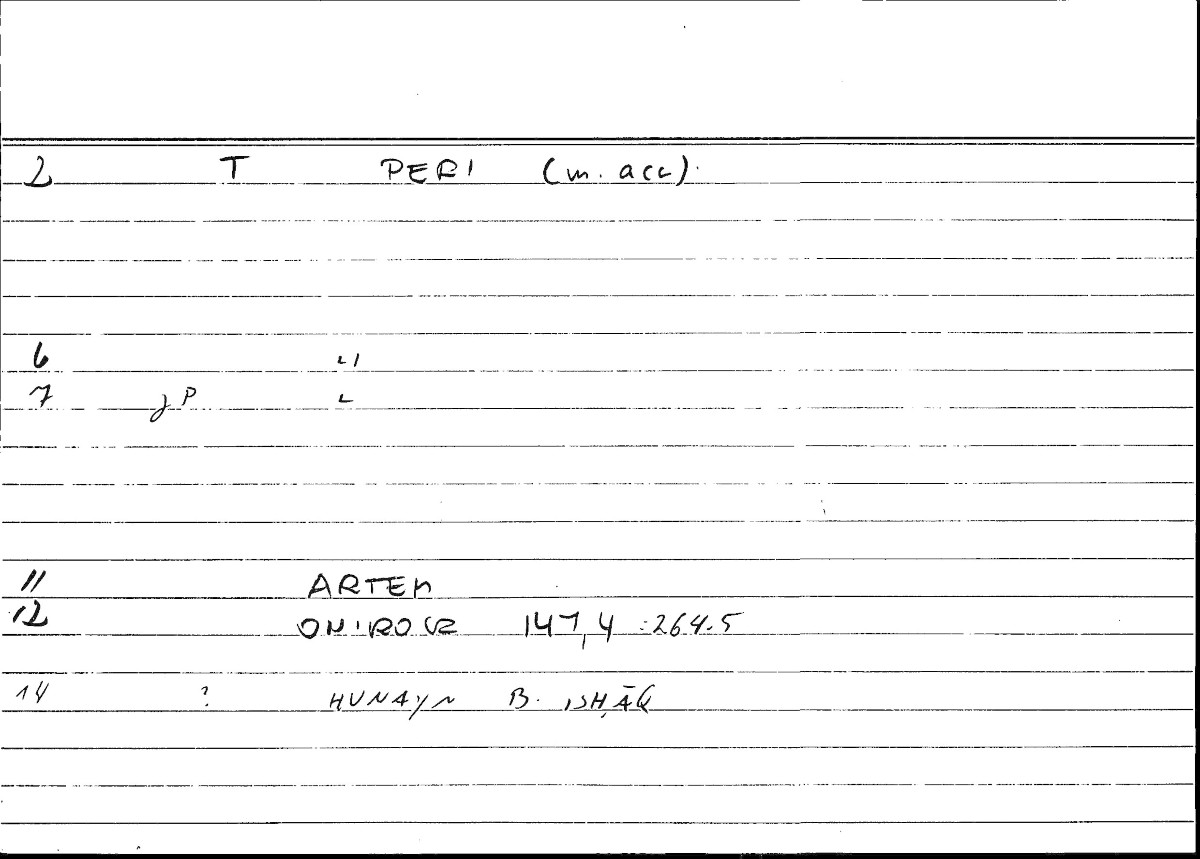 2 T PERI (m. acc).
6
7 P
11 ARTEM
12 ONIROCR 147,4 :264.5
14 ? HUNAYN B. ISḤĀQ